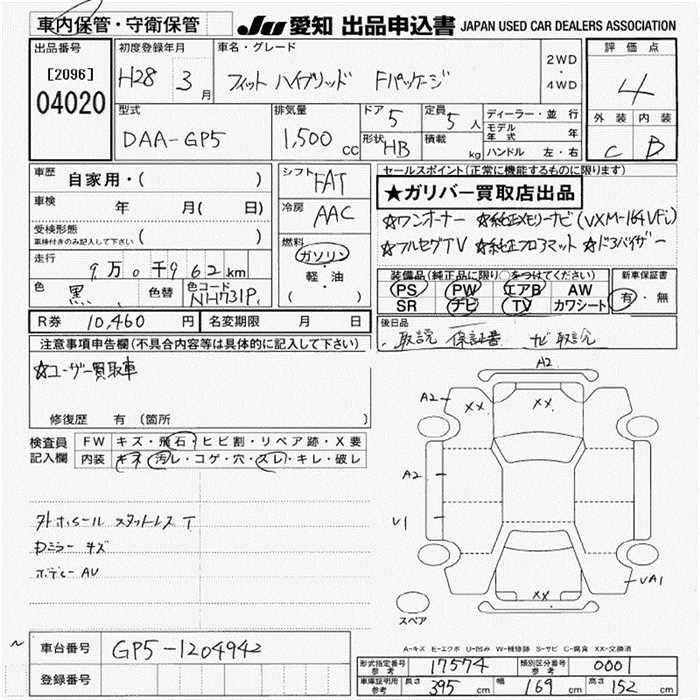 車内保管・守衛保管 JU 愛知 出品申込書 JAPAN USED CAR DEALERS ASSOCIATION
出品番号 初度登録年月 車名・グレード 2WD・4WD 評価点
[2096] 04020 H28 3月 フィット ハイブリッド Fパッケージ 4
型式 排気量 ドア 5 定員 5人 ディーラー・並行 外装 内装
DAA-GP5 1,500cc 形状 HB 積載 kg モデル年式 年 C B
ハンドル 左・右
車歴 自家用・( ) シフト FAT セールスポイント(正常に機能するものに限ります)
★ガリバー買取店出品
車検 年 月( 日) 冷房 AAC ☆ワンオーナー ☆純正メモリーナビ(VXM-164VFi)
受検形態 ( ) ☆フルセグTV ☆純正フロアマット ☆ドアバイザー
車検付きのみ記入して下さい
走行 9万0千962km 燃料 ガソリン・軽・油 ( )
装備品(純正品に限り○をつけてください) 新車保証書
色 黒 色替 色コード NH731P PS PW エアB AW 有・無
SR ナビ TV カワシート
R券 10,460円 名変期限 月 日 後日品
取説 保証書 ナビ取説
注意事項申告欄(不具合内容等は具体的に記入して下さい)
☆ユーザー買取車
修復歴 有(箇所 )
検査員記入欄 FW キズ・飛石・ヒビ割・リペア跡・X要
内装 キズ・汚レ・コゲ・穴・スレ・キレ・破レ
外ホイール スタットレスT
Dミラー キズ
ボディー AU
A2
A2 XX XX
A2
V1
XX VA1
スペア
A-キズ E-エクボ U-凹み W-補修跡 S-サビ C-腐食 XX-交換済
車台番号 GP5-1204942
登録番号
形式指定番号参考 17574 類別区分番号参考 0001
車庫証明用参考 長さ 395cm 幅 169cm 高さ 152cm